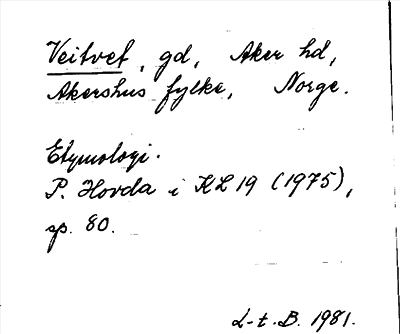 Veitvet, gd, Aker hd,
Akershus fylke, Norge.
Etymologi.
P. Hovda i KL 19 (1975),
sp. 80.
L-t.B. 1981.